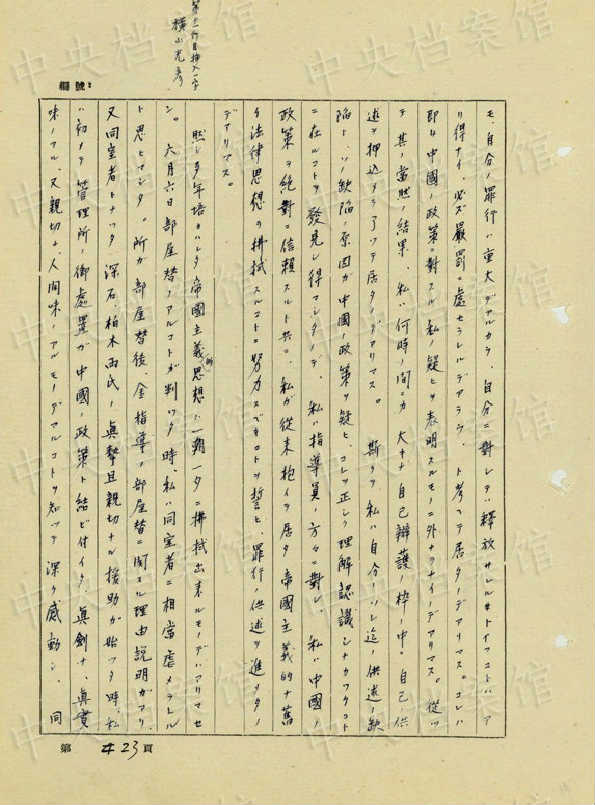 第十一行目挿入一字
横山光彦
編號：
モ、自分ノ罪行ハ重大デアルカラ、自分ニ對シテハ釋放サレルナドイフコトハア
リ得ナイ、必ズ嚴罰ニ處セラレルデアラウ、ト考ヘテ居タノデアリマス。コレハ
即チ中國ノ政策ニ對スル私ノ疑ヒヲ表明スルモノニ外ナラナイノデアリマス。從ツ
テ其ノ當然ノ結果、私ハ何時ノ間ニカ大キナ自己辯護ノ枠ノ中ニ自己ノ供
述ヲ押込メテ了ツテ居タノデアリマス。斯クテ私ハ自分ノソレ迄ノ供述ノ缺
陥ト、ソノ缺陥ノ原因ガ中國ノ政策ヲ疑ヒ、コレヲ正シク理解認識シナカツタコト
ニ在ルコトヲ發見シ得マシタノデ、私ハ指導員ノ方々ニ對シ、私ハ中國ノ
政策ヲ絶對ニ信賴スルト共ニ、私ガ從來抱イテ居タ帝國主義的ナ舊
イ法律思想ヲ拂拭スルコトニ努力スベキコトヲ誓ヒ、罪行ノ供述ヲ進メタノ
デアリマス。
然シ多年培ハレタ帝國主義的思想ハ一朝一夕ニ拂拭出來ルモノデハアリマセ
ン。六月六日部屋替ノアルコトガ判ツタ時、私ハ同室者ニ相當虐メラレル
ト思ヒマシタ。所ガ部屋替後、金指導ノ部屋替ニ關スル理由說明ガアリ、
又同室者トナツタ深石、柏木両氏ノ眞摯且親切ナル援助ガ始ツタ時、私
ハ初メテ管理所ノ御處置ガ中國ノ政策ト結ビ付イタ、眞劍ナ、眞實
味ノアル、又親切ナ、人間味ノアルモノデアルコトヲ知ツテ深ク感動シ、同
第 423 頁
中央档案馆